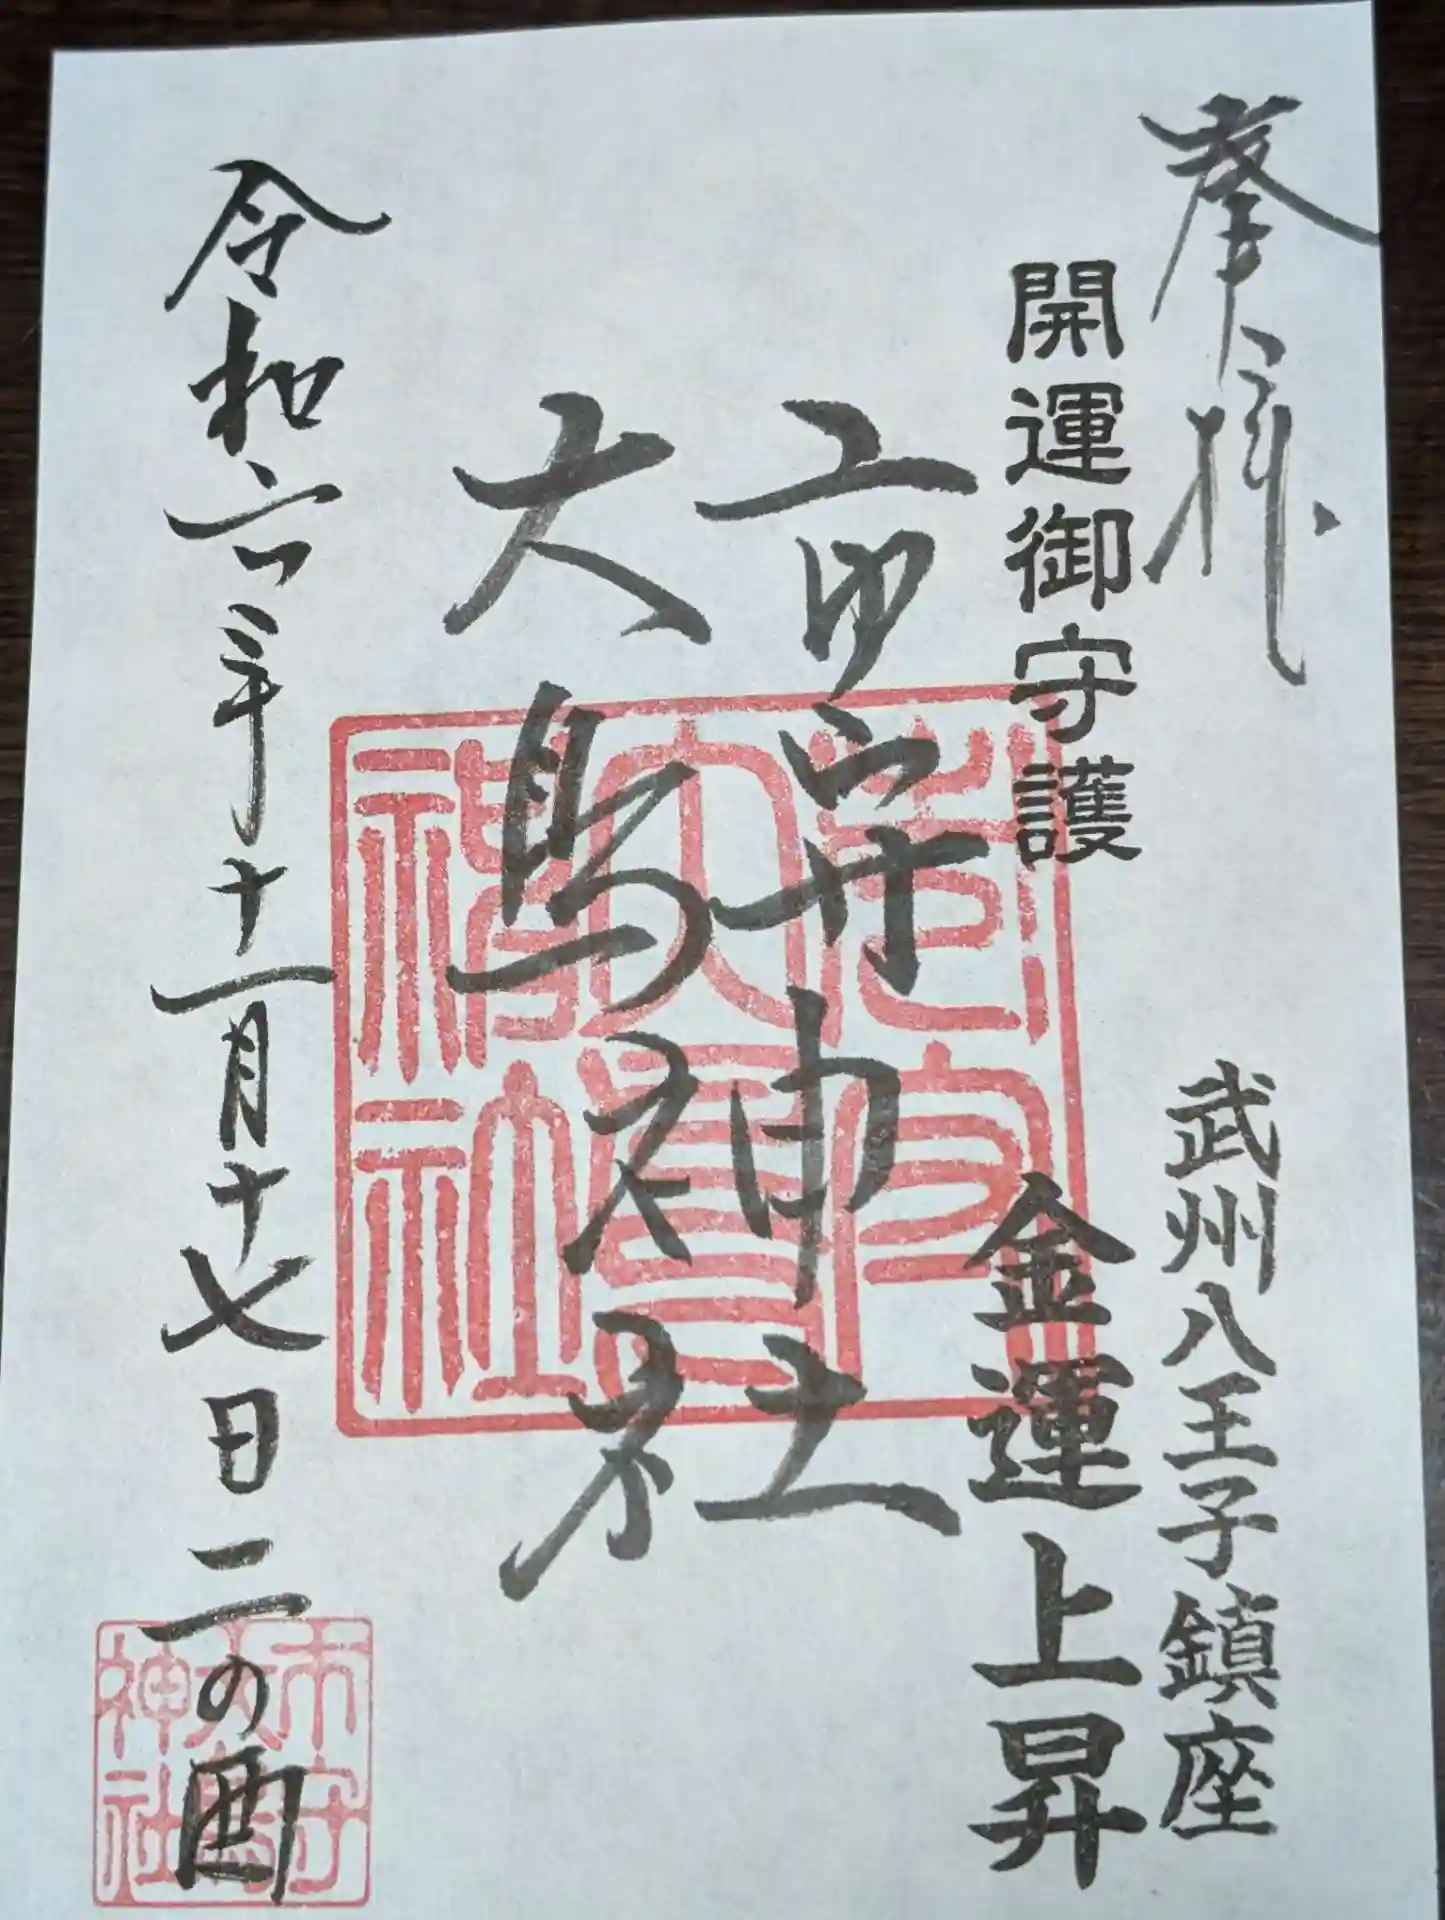 奉拝
武州八王子鎮座
開運御守護
金運上昇
市守
大鳥
神社
令和六年十一月十七日二の酉
市守
大鳥
神社
市守
大鳥
神社